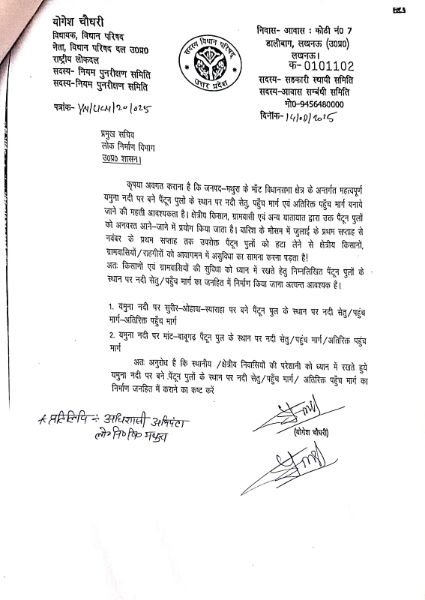 योगेश चौधरी
विधायक, विधान परिषद
नेता, विधान परिषद दल उ0प्र0
राष्ट्रीय लोकदल
सदस्य- नियम पुनरीक्षण समिति
सदस्य- नियम पुनरीक्षण समिति
सदस्य विधान परिषद
उत्तर प्रदेश
निवास- आवास : कोठी नं0 7
डालीबाग, लखनऊ (उ0प्र0)
लखनऊ।
फ-0101102
सदस्य- सहकारी स्थायी समिति
सदस्य-आवास सम्बंधी समिति
मो0-9456480000
पत्रांक-
दिनांक-
प्रमुख सचिव
लोक निर्माण विभाग
उ0प्र0 शासन।
कृपया अवगत कराना है कि जनपद-मथुरा के माँट विधानसभा क्षेत्र के अन्तर्गत महत्वपूर्ण
यमुना नदी पर बने पैंटून पुलों के स्थान पर नदी सेतु, पहुँच मार्ग एवं अतिरिक्त पहुँच मार्ग बनाये
जाने की महती आवश्यकता है। क्षेत्रीय किसान, ग्रामवासी एवं अन्य यातायात द्वारा उक्त पैंटून पुलों
को अनवरत आने-जाने में प्रयोग किया जाता है। बारिश के मौसम में जुलाई के प्रथम सप्ताह से
नवंबर के प्रथम सप्ताह तक उपरोक्त पैंटून पुलों को हटा लेने से क्षेत्रीय किसानों,
ग्रामवासियों/राहगीरों को आवागमन में असुविधा का सामना करना पड़ता है!
अतः किसानों एवं ग्रामवासियों की सुविधा को ध्यान में रखते हुये निम्नलिखित पैंटून पुलों के
स्थान पर नदी सेतु/पहुंच मार्ग का जनहित में निर्माण किया जाना अत्यन्त आवश्यक है।
1. यमुना नदी पर सुरीर-ओहावा-स्यारहा पर बने पैंटून पुल के स्थान पर नदी सेतु/पहुंच
मार्ग-अतिरिक्त पहुंच मार्ग
2. यमुना नदी पर मांट-बाबूगढ पैंटून पुल के स्थान पर नदी सेतु/पहुंच मार्ग/अतिरिक्त पहुंच
मार्ग
अतः अनुरोध है कि स्थानीय /क्षेत्रीय निवासियों की परेशानी को ध्यान में रखते हुये
यमुना नदी पर बने पैंटून पुलों के स्थान पर नदी सेतु/ पहुंच मार्ग/ अतिरिक्त पहुंच मार्ग का
निर्माण जनहित में कराने का कष्ट करें
(योगेश चौधरी)
* प्रतिलिपि :- अधिशासी अभियंता